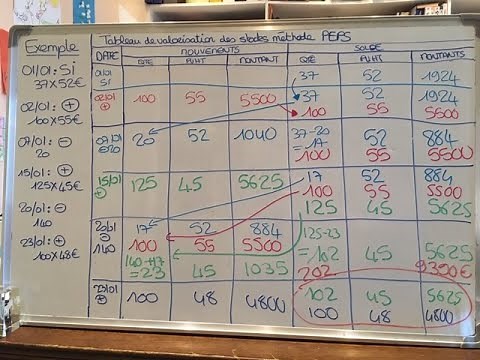 Exemple
01/01: Si
37x52€
02/01: +
100x55€
07/01: -
20
15/01: +
125x45€
20/01: -
140
23/01: +
100x48€
Tableau de valorisation des stocks méthode PEPS
DATE MOUVEMENTS SOLDE
QTÉ PUHT MONTANT QTÉ PUHT MONTANT
01/01 Si 37 52 1924
02/01 + 100 55 5500 37 52 1924
100 55 5500
07/01 - 20 20 52 1040 37-20 = 17 52 884
100 55 5500
15/01 + 125 45 5625 17 52 884
100 55 5500
125 45 5625
20/01 - 140 17 52 884
100 55 5500 125-23 = 102 45 5625
=23 45 1035 202 9390€
23/01 + 100 48 4800 102 45 5625
100 48 4800